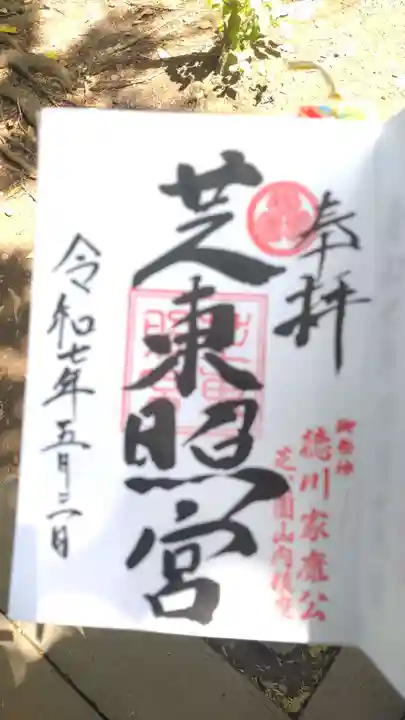 奉拝
御祭神
徳川家康公
芝公園山内鎮座
芝東照宮
令和七年五月二日